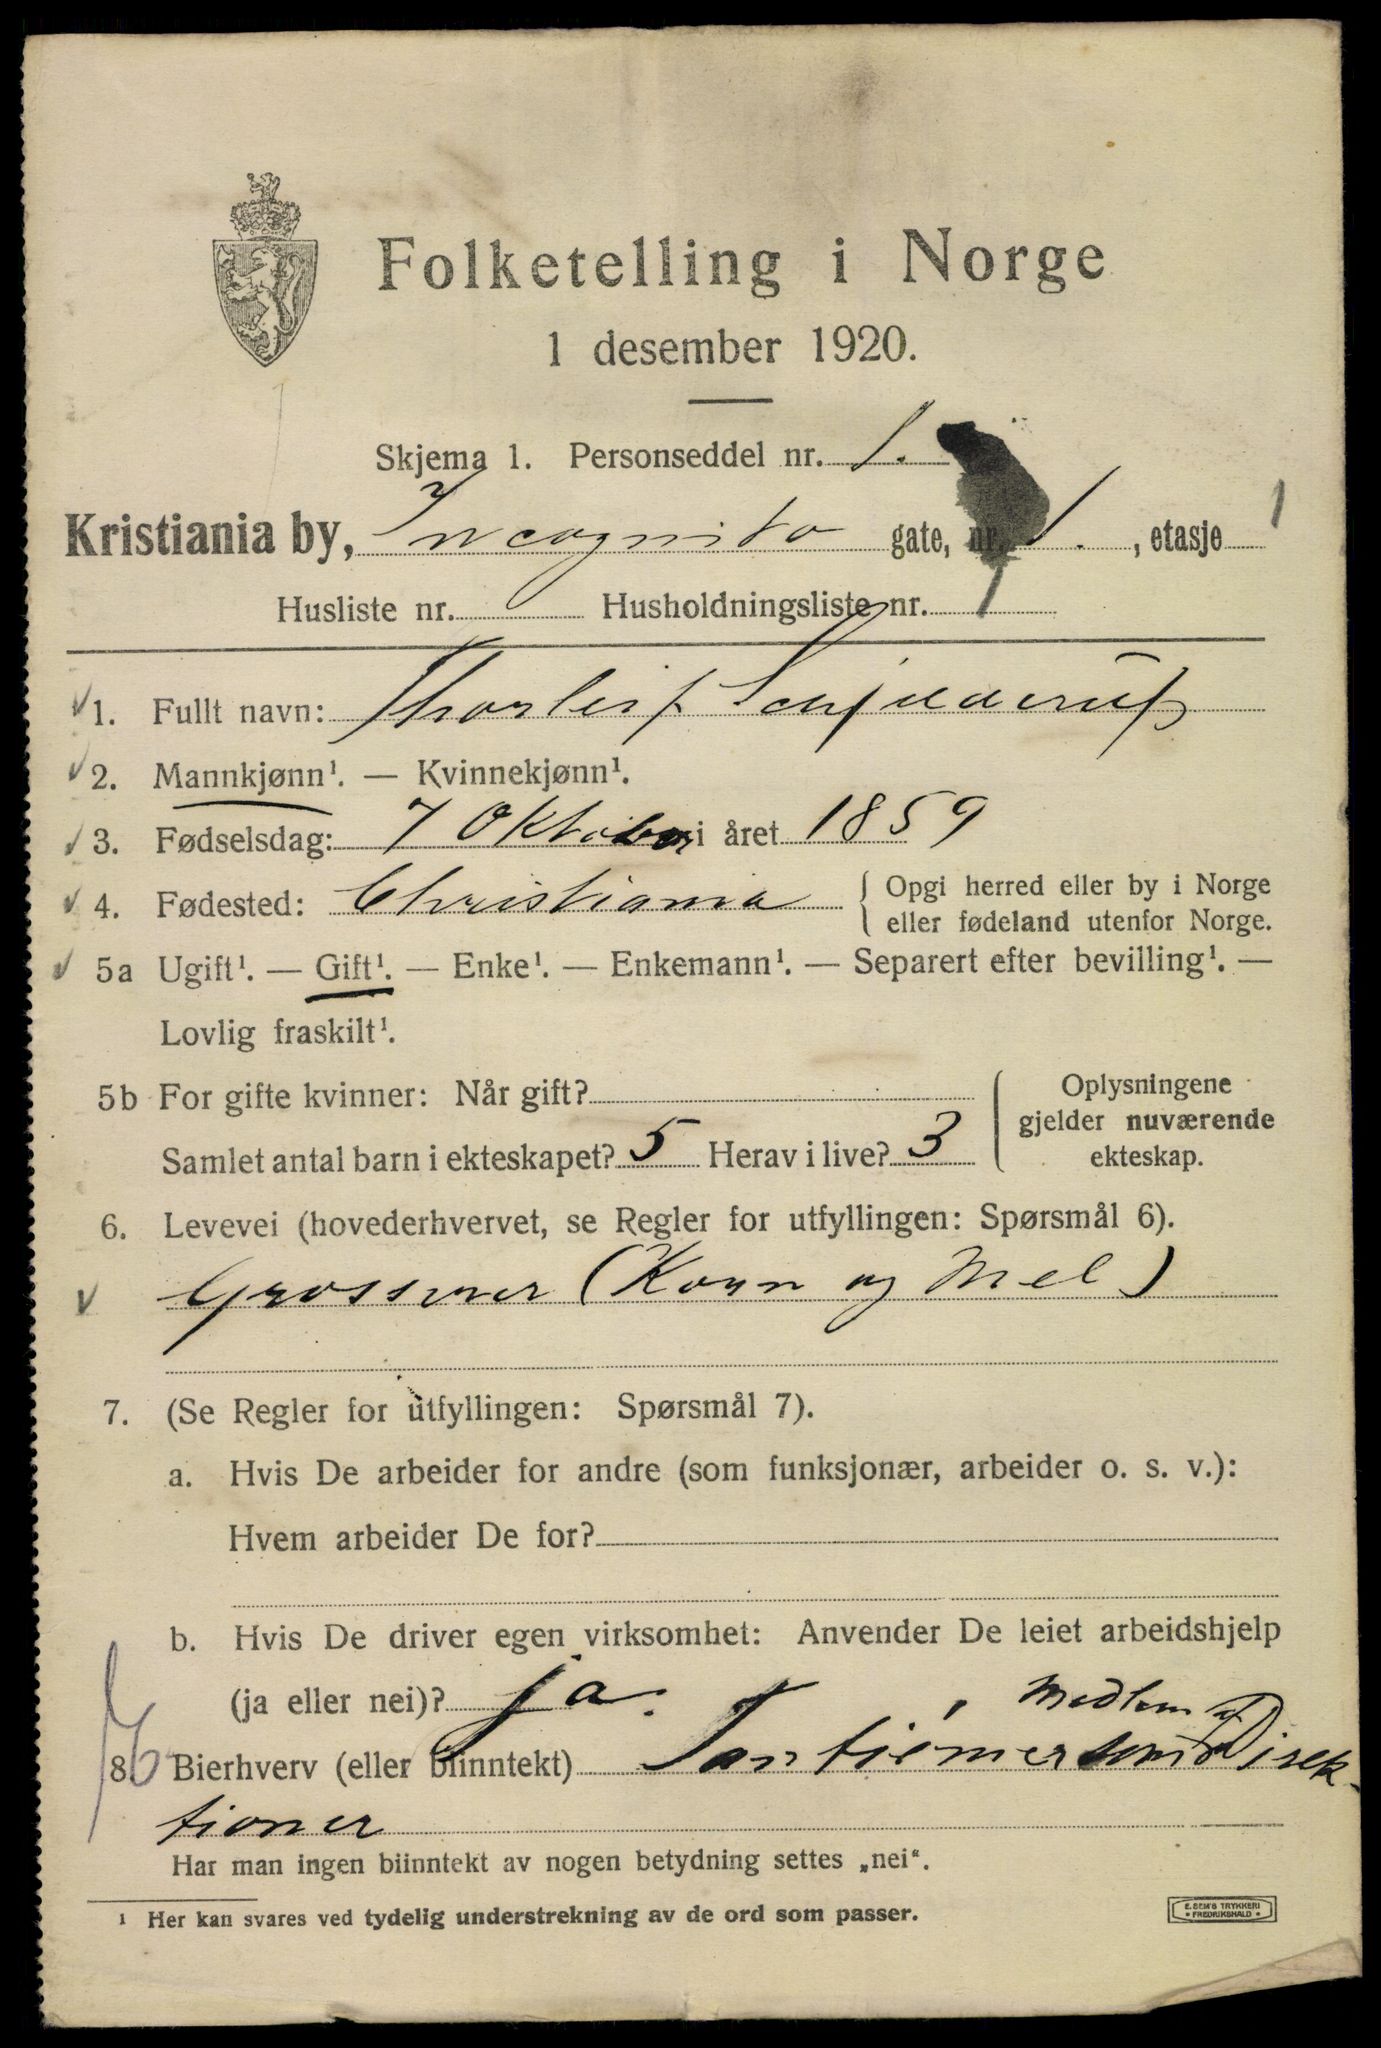 Folketelling i Norge
1 desember 1920.
Skjema 1. Personseddel nr. 1.
Kristiania by, Incognito gate, nr. 1., etasje 1
Husliste nr. Husholdningsliste nr. 1
1. Fullt navn: Thorleif Schjelderup
2. Mannkjønn¹. — Kvinnekjønn¹.
3. Fødselsdag: 7 Oktober i året 1859
4. Fødested: Christiania { Opgi herred eller by i Norge
eller fødeland utenfor Norge.
5a Ugift¹. — Gift¹. — Enke¹. — Enkemann¹. — Separert efter bevilling¹. —
Lovlig fraskilt¹.
5b For gifte kvinner: Når gift? { Oplysningene
gjelder nuværende
Samlet antal barn i ekteskapet? 5 Herav i live? 3 ekteskap.
6. Levevei (hovederhvervet, se Regler for utfyllingen: Spørsmål 6).
Grosserer (Korn og Mel)
7. (Se Regler for utfyllingen: Spørsmål 7).
a. Hvis De arbeider for andre (som funksjonær, arbeider o. s. v.):
Hvem arbeider De for?
b. Hvis De driver egen virksomhet: Anvender De leiet arbeidshjelp
(ja eller nei)? ja. Medlem af
8. Bierhverv (eller biinntekt) Tantiémer som Direk-
tioner
Har man ingen biinntekt av nogen betydning settes „nei“.
¹ Her kan svares ved tydelig understrekning av de ord som passer.
E. SEM'S TRYKKERI
FREDRIKSHALD